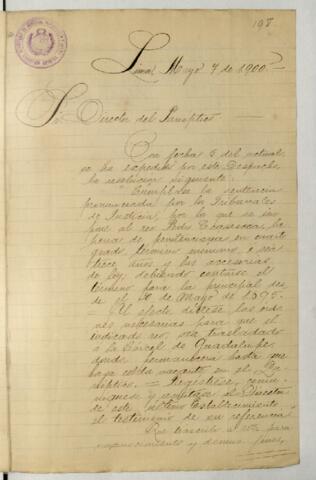 198
Lima, Mayo 7 de 1900.
Sr. Director del Panóptico
Con fecha 5 del actual,
se ha expedido por este Despacho,
la resolucion siguiente:
"Cumplase la sentencia
pronunciada por los Tribunales
de Justicia, por la que se im-
pone al reo Pedro la
pena de penitenciaria en cuarto
grado, término mínimo, o sea
trece años, y las accesorias
de ley, debiendo contarse el
término para la principal des-
de el de Mayo de 1895.
= Al efecto díctese las órde-
nes necesarias para que el
indicado reo sea trasladado
a la Cárcel de Guadalupe,
donde permanecerá hasta que
haya celda vacante en el Pa-
nóptico. = Regístrese, comu-
níquese y remítase al Director
de este último Establecimiento
el testimonio de su referencia."
Que trascribo a U. para
su conocimiento y demas fines.